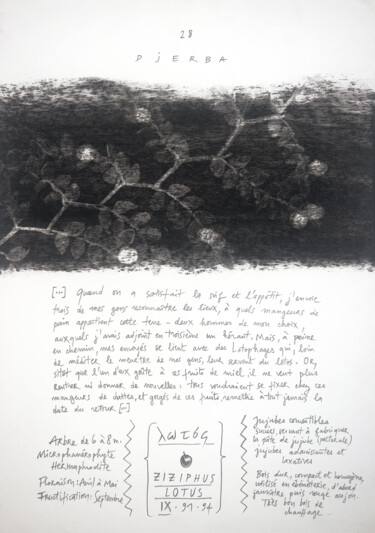 28
DjERBA
[...] Quand on a satisfait la soif et l'appétit, j'envoie
trois de mes gens reconnaître les lieux, à quels mangeurs de
pain appartient cette terre - deux hommes de mon choix,
auxquels j'avais adjoint en troisième un héraut. Mais, à peine
en chemin, mes envoyés se lient avec des Lotophages qui, loin
de méditer le meurtre de mes gens, leur servent du lotos. Or,
sitôt que l'un d'eux goûte à ces fruits de miel, il ne veut plus
rentrer ni donner de nouvelles: tous voudraient se fixer chez ces
mangeurs de dattes, et gorgés de ces fruits, remettre à tout jamais la
date du retour [...]
Arbre de 6 à 8m.
Microphanérophyte
Hermaphrodite
Floraison: Avril à Mai
Fructification: Septembre
λωτός
ZIZIPHUS
LOTUS
IX . 91 . 94
Jujubes comestibles
sucrées, servant à fabriquer
la pâte de jujube (pectorale)
jujubes adoucissantes et
laxatives
Bois dur, compact et homogène,
utilisé en ébénisterie, d'abord
jaunâtre, puis rouge acajou.
Très bon bois de
chauffage